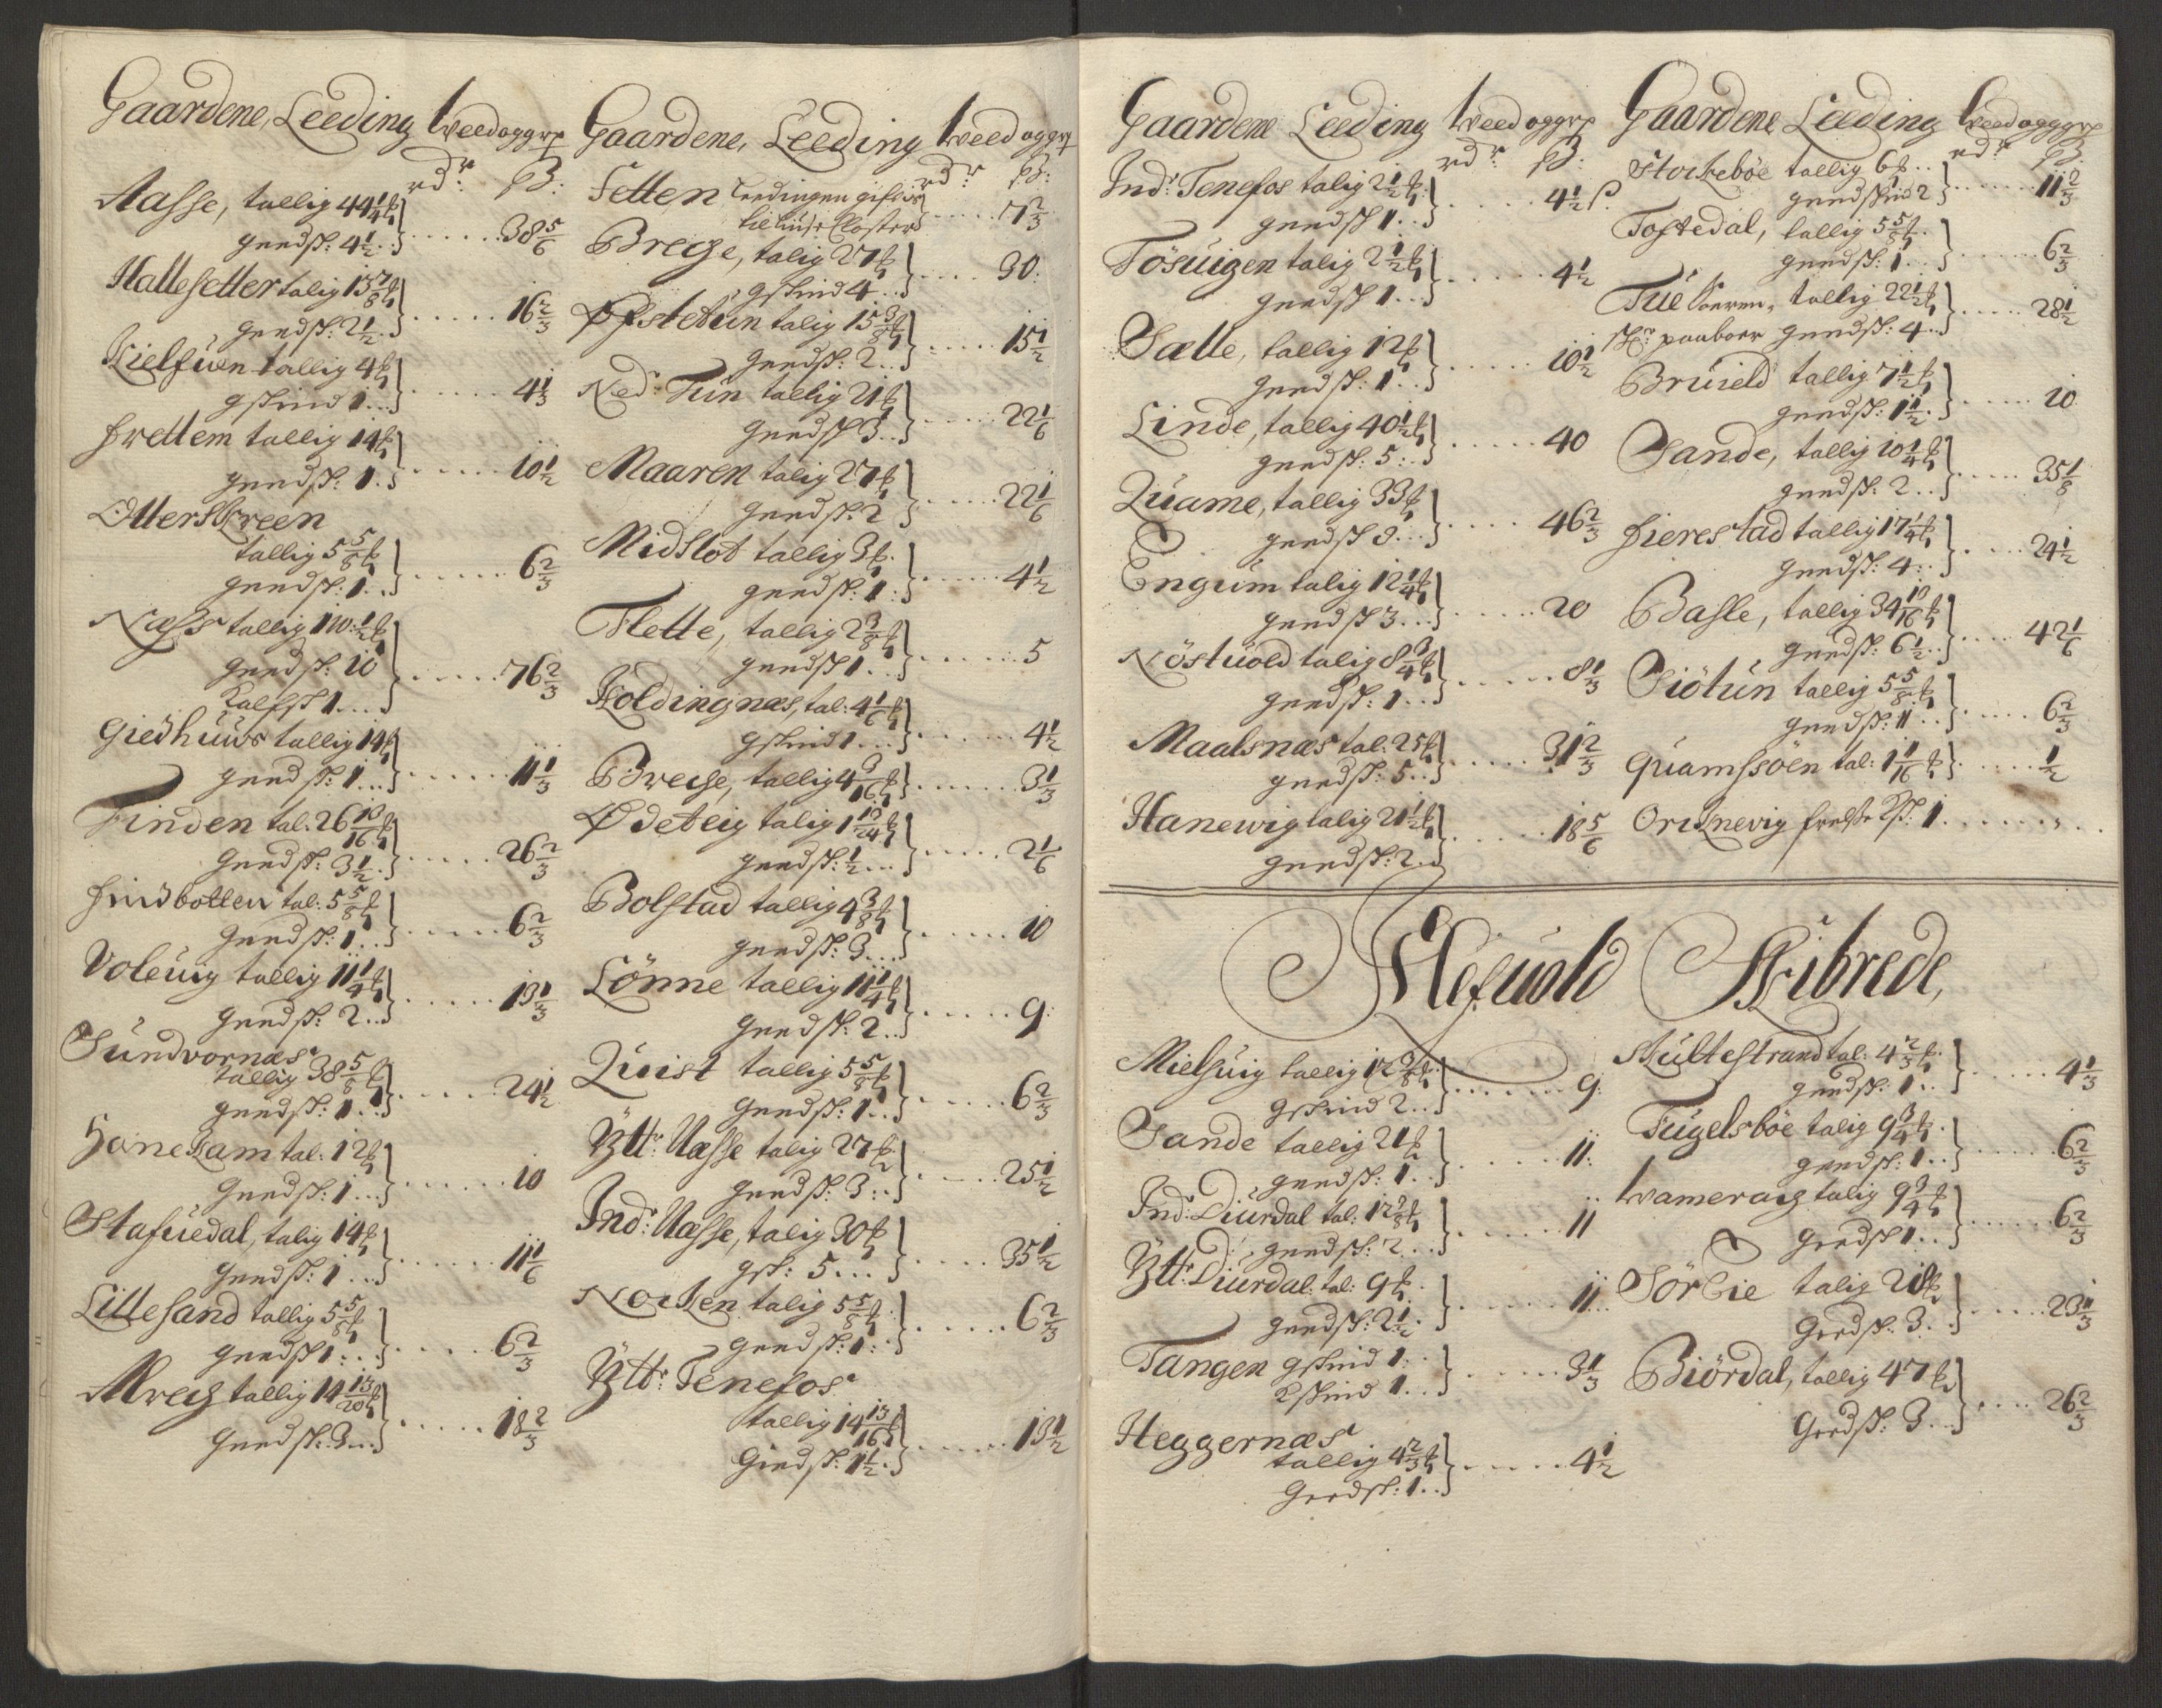 Gaardene, Leeding Weed oggrp
rdr: sß:
Aasse, tallig 44 1/4 ℔
geedsk: 4 1/2 ..... 38 5/6
Hallesetter talig 13 7/8 ℔
geedsk: 2 1/2 ..... 16 2/3
Kielfuen tallig 4 ℔
gskind 1 ..... 4 1/3
Frettem tallig 14 ℔
geedsk: 1 ..... 10 1/2
Otterskreen
tallig 5 5/8 ℔
geedsk: 1 ..... 6 2/3
Næss tallig 110 1/2 ℔
geedsk: 10 ..... 76 2/3
Kalfsk 1
Giedhuus tallig 14 ℔
geedsk: 1 ..... 11 1/3
Finden tal. 26 10/16 ℔
geedsk: 3 1/2 ..... 26 2/3
Findbotten tal: 5 5/8 ℔
geedsk: 1 ..... 6 2/3
Voleuig tallig 11 1/4 ℔
geedsk: 2 ..... 13 1/3
Sundvornæs
tallig 38 5/8 ℔
geedsk: 1 ..... 24 1/2
Hønekam tal: 12 ℔
geedsk: 1 ..... 10
Stafuedal, talig 14 ℔
geedsk: 1 ..... 11 1/6
Lillesand tallig 5 5/8 ℔
geedsk 1 ..... 6 2/3
Areg tallig 14 13/20 ℔
geedsk: 3 ..... 18 2/3
Gaardene, Leeding Weed oggrp
rdr: sß:
Fetten Leedingen gifuis
til Liuse Closter ..... 7 2/3
Brege, talig 27 ℔
gskind 4 ..... 30
Øfstetun talig 15 3/8 ℔
geedsk: 2 ..... 15 1/2
Ned: Tun tallig 21 ℔
geedsk 3 ..... 22 1/6
Maaren talig 27 ℔
geedsk: 2 ..... 22 1/6
Midslot tallig 3 ℔
geedsk: 1 ..... 4 1/2
Flette, tallig 2 3/8 ℔
geedsk 1 ..... 5
Koldingnæs, tal: 4 1/6 ℔
gskind 1 ..... 4 1/2
Brege, tallig 4 3/16 ℔ ..... 3 1/3
Ødeteig talig 1 13/24 ℔
geedsk: 1/2 ..... 2 1/6
Bolstad tallig 4 3/8 ℔
geedsk: 3 ..... 10
Lönne tallig 11 1/4 ℔
geedsk: 2 ..... 9
Quist tallig 5 5/8 ℔
geedsk: 1 ..... 6 2/3
Ytt: Næsse talig 27 ℔
geedsk: 3 ..... 25 1/2
Indr: Næsse, talig 30 ℔
gsk: 5 ..... 35 1/2
Nocken talig 5 5/8 ℔
geedsk: 1 ..... 6 2/3
Ytt: Tenefos
tallig 14 13/16 ℔
Giedsk: 1 1/2 ..... 13 1/2
Gaardene Leeding Weed oggrp
rdr: sß:
Indr: Tenefos talig 2 1/2 ℔
geedsk 1 ..... 4 1/2 s.
Tösuigen talig 2 1/2 ℔
geedsk 1 ..... 4 1/2
Sælle, tallig 12 ℔
geedsk: 1 ..... 10 1/2
Linde, tallig 40 1/2 ℔
geedsk: 5 ..... 40
Quame, tallig 33 ℔
geedsk 3 ..... 46 2/3
Engum talig 12 1/4 ℔
geedsk 3 ..... 20
Nöstuold talig 8 3/4 ℔
geedsk: 1 ..... 8 1/3
Maalsnæs tal: 25 ℔
geedsk: 5 ..... 31 2/3
Hanewig talig 21 1/2 ℔
geedsk: 2 ..... 18 5/6
Gaardene Leeding Weed oggrp
rdr: sß:
Stockeböe tallig 6 ℔
geedskind 2 ..... 11 2/3
Tostedal, tallig 5 5/8 ℔
geedsk: 1 ..... 6 2/3
Tue, tallig 22 1/2 ℔
paaboer geedsk: 4 ..... 28 1/2
Brueld tallig 7 1/2 ℔
geedsk: 1 1/2 ..... 10
Sande, tallig 10 1/4 ℔
geedsk: 2 ..... 35 1/8
Fierestad tallig 17 1/4 ℔
geedsk: 4 ..... 24 1/2
Basle, tallig 34 10/16 ℔
geedsk: 6 1/2 ..... 42 1/6
Siötun tallig 5 5/8 ℔
geedsk: 1 ..... 6 2/3
Quamssöen tal: 1 1/16 ℔ ..... 1/2
Oricknevig frelse Lsk: 1 .....
Klefuold Skibrede,
Mielsuig tallig 12 3/8 ℔
gskind 2 ..... 9
Sande tallig 21 ℔
geedsk: 1 ..... 11
Ind: Diurdal tal: 12 3/8 ℔
geedsk: 2 ..... 11
Ytt: Diurdal tal: 9 ℔
geedsk: 2 1/2 ..... 11
Tangen gskind 1
Kskind 1 ..... 3 1/3
Heggernæs
tallig 4 2/3 ℔
Geedsk: 1 ..... 4 1/2
Hultestrand tal: 4 2/3 ℔
geedsk: 1 ..... 4 1/3
Fugelsböe talig 9 3/4 ℔
geedsk: 1 ..... 6 2/3
Wameraig talig 9 3/4 ℔
geedsk 1 ..... 6 2/3
Sörbie talig 21 ℔
Geedsk: 3 ..... 23 1/3
Biördal, tallig 47 ℔
Geedsk: 3 ..... 26 2/3